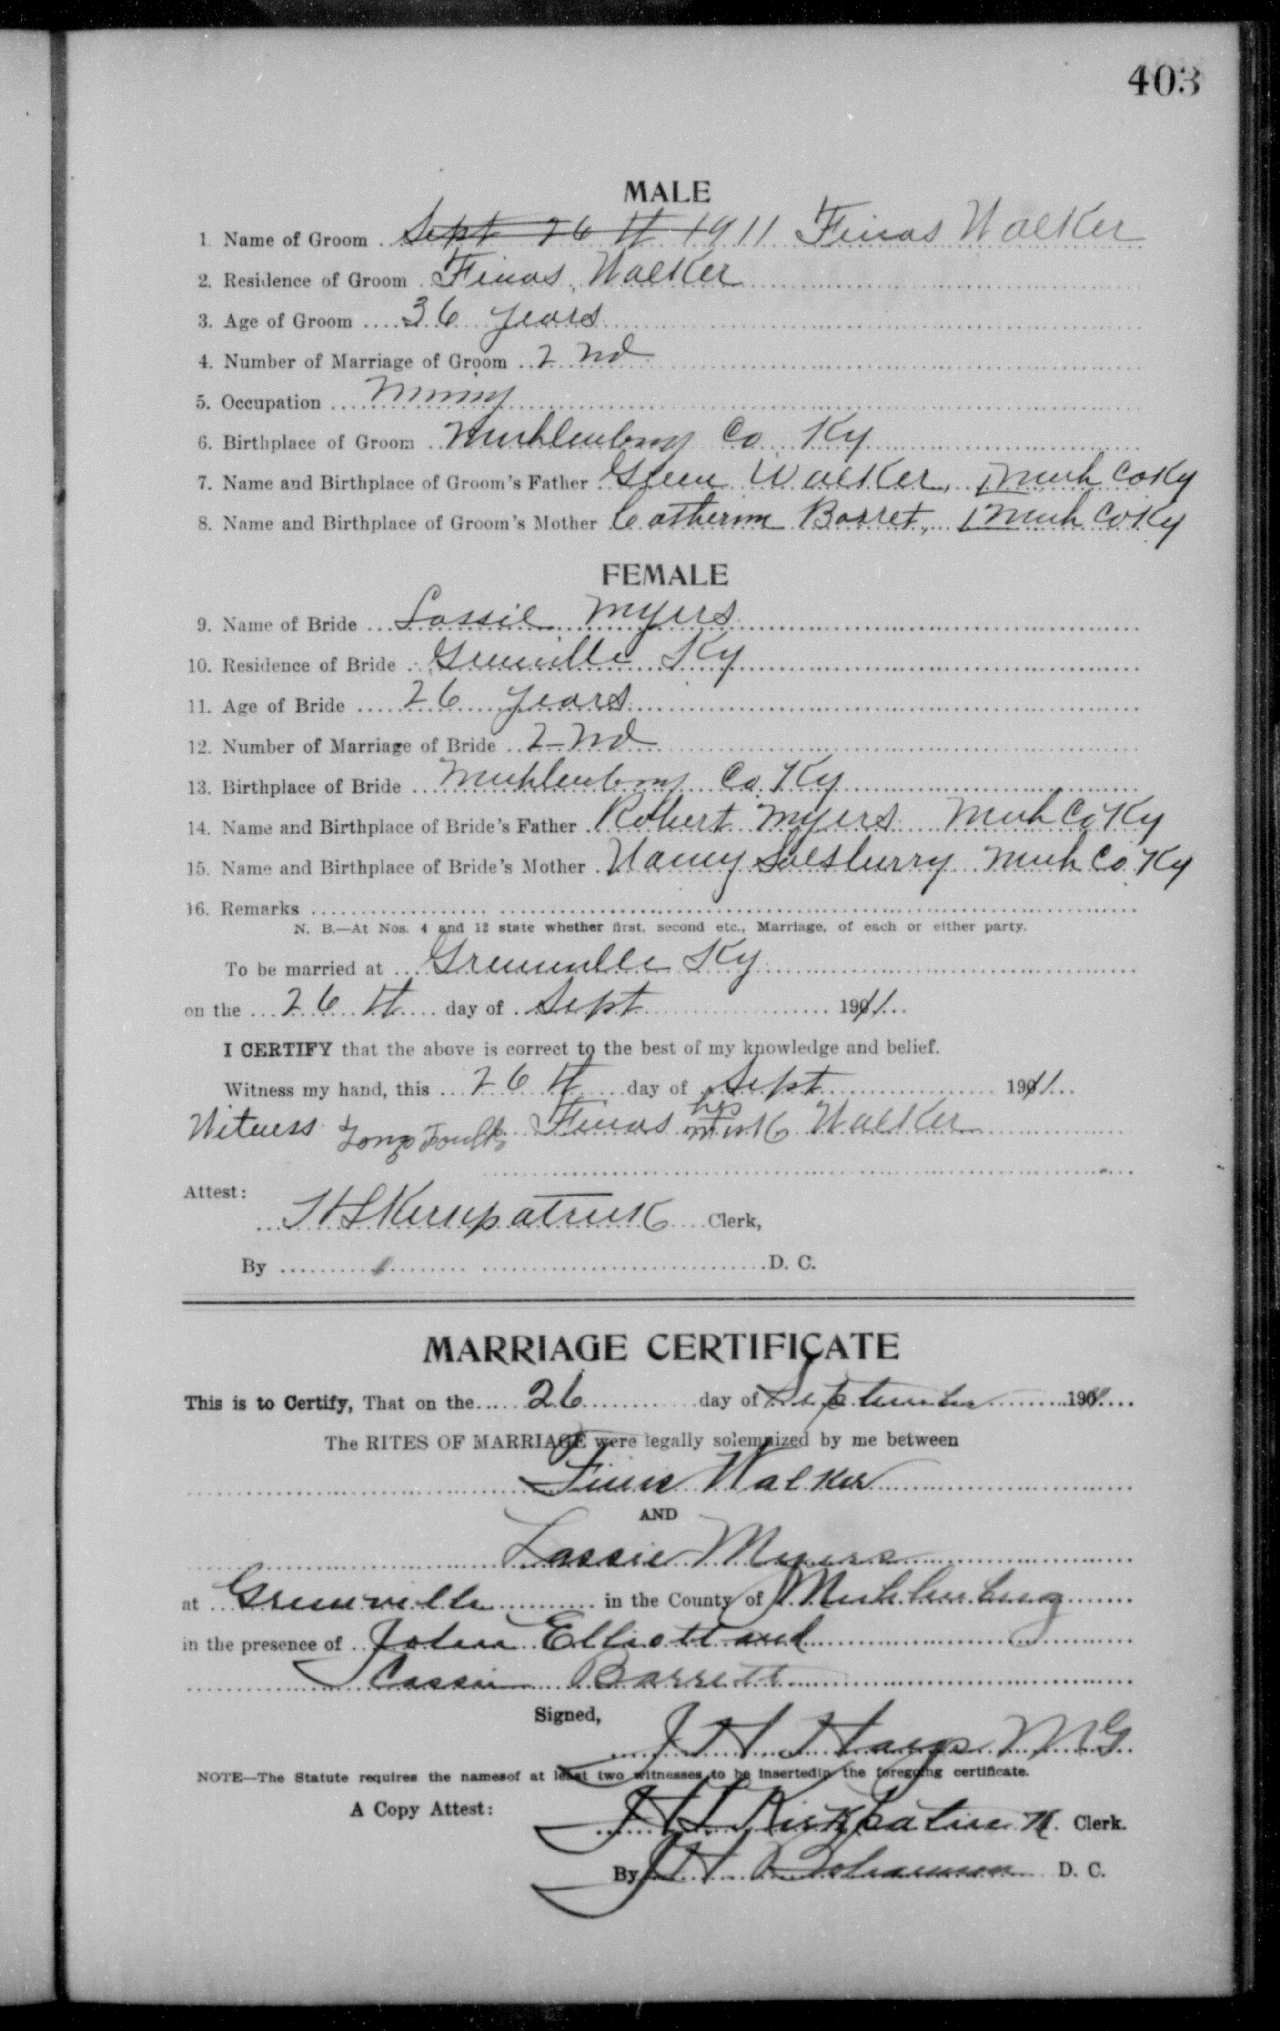 403
MALE
1 Name of Groom Sept 26 th 1911 Finas Walker
2. Residence of Groom Finas, Walker
3. Age of Groom 36 years
4. Number of Marriage of Groom 2 nd
5. Occupation
6. Birthplace of Groom Muhlenberg Co Ky
7. Name and Birthplace of Groom's Father Green Walker, Muh Co Ky
8. Name and Birthplace of Groom's Mother Catherine Barret, Muh Co Ky
FEMALE
9. Name of Bride Lassie Myers
10. Residence of Bride Greenville Ky
11. Age of Bride 26 years
12. Number of Marriage of Bride 2-nd
13. Birthplace of Bride Muhlenberg Co. Ky
14. Name and Birthplace of Bride's Father Robert Myers Muh Co Ky
15. Name and Birthplace of Bride's Mother Nancy Salsburry Muh Co Ky
16. Remarks
N. B.—At Nos. 4 and 12 state whether first, second etc., Marriage, of each or either party.
To be married at Greenville Ky
on the 26 th day of Sept 1911
I CERTIFY that the above is correct to the best of my knowledge and belief.
Witness my hand, this 26 th day of Sept 1911
his
Witness Finas mark Walker
Attest:
H L Kirkpatrick Clerk,
By D. C.
MARRIAGE CERTIFICATE
This is to Certify, That on the 26 day of September 190
The RITES OF MARRIAGE were legally solemnized by me between
Finis Walker
AND
Lassie Myers
at Greenville in the County of Muhlenberg
in the presence of John Elliott and
Cassie Barrett
Signed,
J H Hays M G
NOTE—The Statute requires the namesof at least two witnesses to be insertedin the foregoing certificate.
A Copy Attest: H L Kirkpatrick Clerk.
By J H D. C.